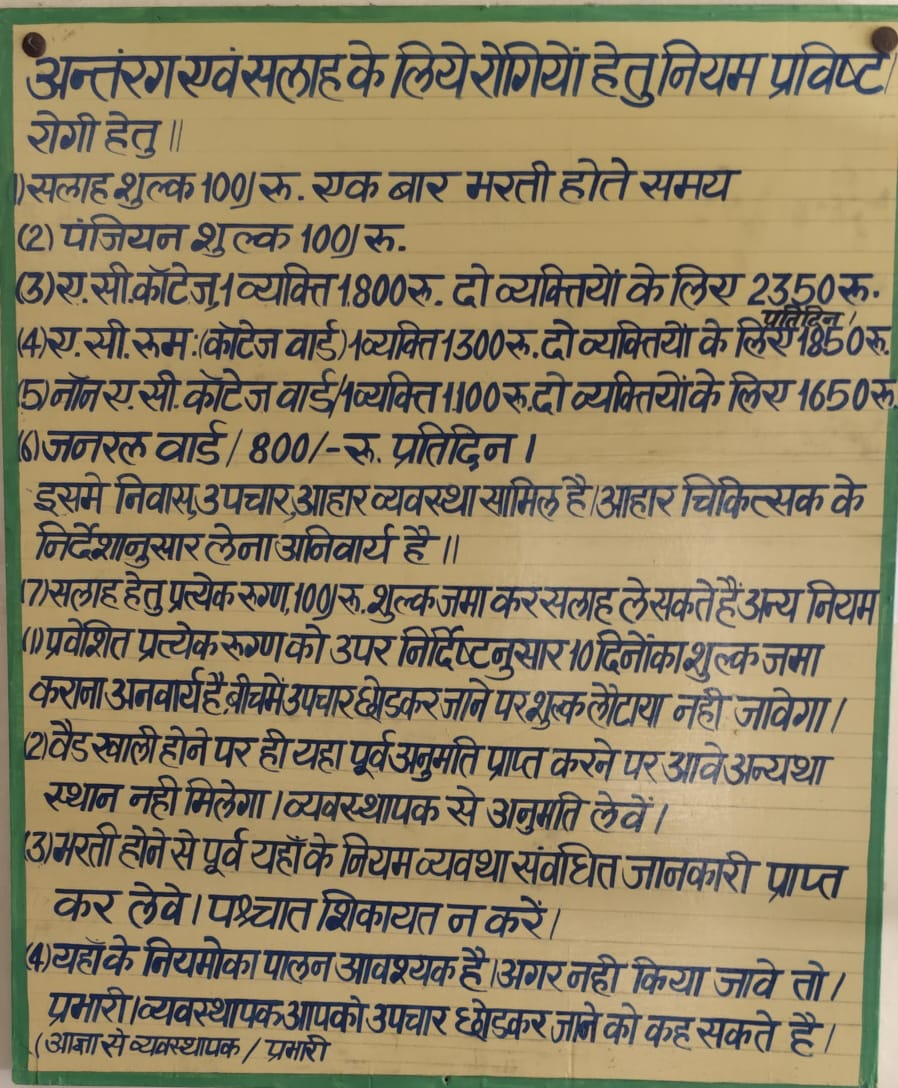 अन्तंरग एवं सलाह के लिये रोगियों हेतु नियम प्रविष्ट
रोगी हेतु ॥
1) सलाह शुल्क 100/ रु. एक बार भरती होते समय
(2) पंजियन शुल्क 100/ रु.
(3) ए. सी. कॉटेज, 1 व्यक्ति 1800 रु. दो व्यक्तियों के लिए 2350 रु.
प्रतिदिन।
(4) ए. सी. रुम : (कॉटेज वार्ड) 1 व्यक्ति 1300 रु. दो व्यक्तियों के लिए 1850 रु.
(5) नॉन ए. सी. कॉटेज वार्ड/1 व्यक्ति 1100 रु. दो व्यक्तियों के लिए 1650 रु.
(6) जनरल वार्ड / 800/- रु. प्रतिदिन ।
इसमे निवास, उपचार, आहार व्यवस्था सामिल है। आहार चिकित्सक के
निर्देशानुसार लेना अनिवार्य है ॥
(7) सलाह हेतु प्रत्येक रुग्ण, 100/ रु. शुल्क जमा कर सलाह ले सकते हैं अन्य नियम
(1) प्रवेशित प्रत्येक रुग्ण को उपर निर्दिष्टनुसार 10 दिनों का शुल्क जमा
कराना अनवार्य है, बीच में उपचार छोडकर जाने पर शुल्क लौटाया नही जावेगा ।
(2) वैड खाली होने पर ही यहा पूर्व अनुमति प्राप्त करने पर आवे अन्यथा
स्थान नही मिलेगा । व्यवस्थापक से अनुमति लेवें ।
(3) भरती होने से पूर्व यहाँ के नियम व्यवथा संवधित जानकारी प्राप्त
कर लेवे । पश्चात शिकायत न करें ।
(4) यहाँ के नियमो का पालन आवश्यक है । अगर नही किया जावे तो ।
प्रभारी । व्यवस्थापक आपको उपचार छोडकर जाने को कह सकते है ।
( आज्ञा से व्यवस्थापक / प्रभारी